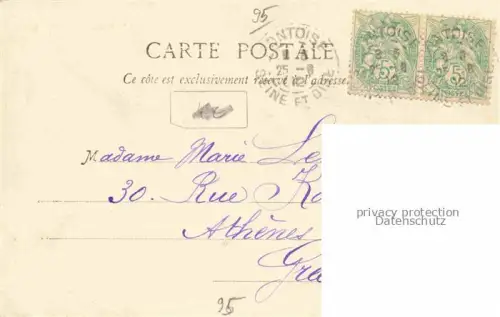 95
CARTE POSTALE
Ce côté est exclusivement réservé à l'adresse.
PONTOISE
25 - 8
SEINE ET OISE
Madame Marie Le
30. Rue K
Athènes
Gra
privacy protection
Datenschutz
95